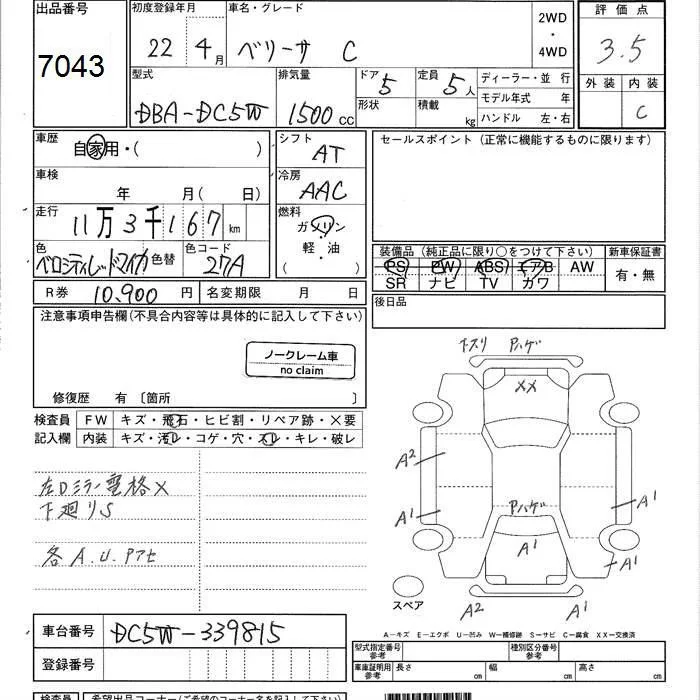 出品番号
7043
初度登録年月
22 4月
車名・グレード
ベリーサ C
2WD
・
4WD
評価点
3.5
外装 内装
C
型式
DBA-DC5W
排気量
1500 CC
ドア 5
形状
定員 5人
積載 kg
ディーラー・並行
モデル年式 年
ハンドル 左・右
車歴
自家用・( )
車検
年 月( 日)
走行
11万3千167km
色
ベロシティレッドマイカ 色替
色コード
27A
シフト
AT
冷房
AAC
燃料
ガソリン
・
軽・油
( )
セールスポイント(正常に機能するものに限ります)
装備品(純正品に限り○をつけて下さい)
PS PW ABS エアB AW
SR ナビ TV カワ
新車保証書
有・無
後日品
R券 10,900円 名変期限 月 日
注意事項申告欄(不具合内容等は具体的に記入して下さい)
ノークレーム車
no claim
修復歴 有〔箇所 〕
検査員
記入欄
FW キズ・飛石・ヒビ割・リペア跡・×要
内装 キズ・汚レ・コゲ・穴・スレ・キレ・破レ
左Dミラー電格×
下廻りS
各A.U.Pアセ
下スリ Pハゲ
××
A2
A1
Pハゲ
A1
A1
A1
A2
A1
スペア
A-キズ E-エクボ U-凹み W-補修跡 S-サビ C-腐食 XX-交換済
車台番号
DC5W-339815
登録番号
型式指定番号
参考
種別区分番号
参考
車庫証明用
参考
長さ cm
幅 cm
高さ cm
検査員
希望出品コーナー(ご希望のコーナー名を記入下さい)